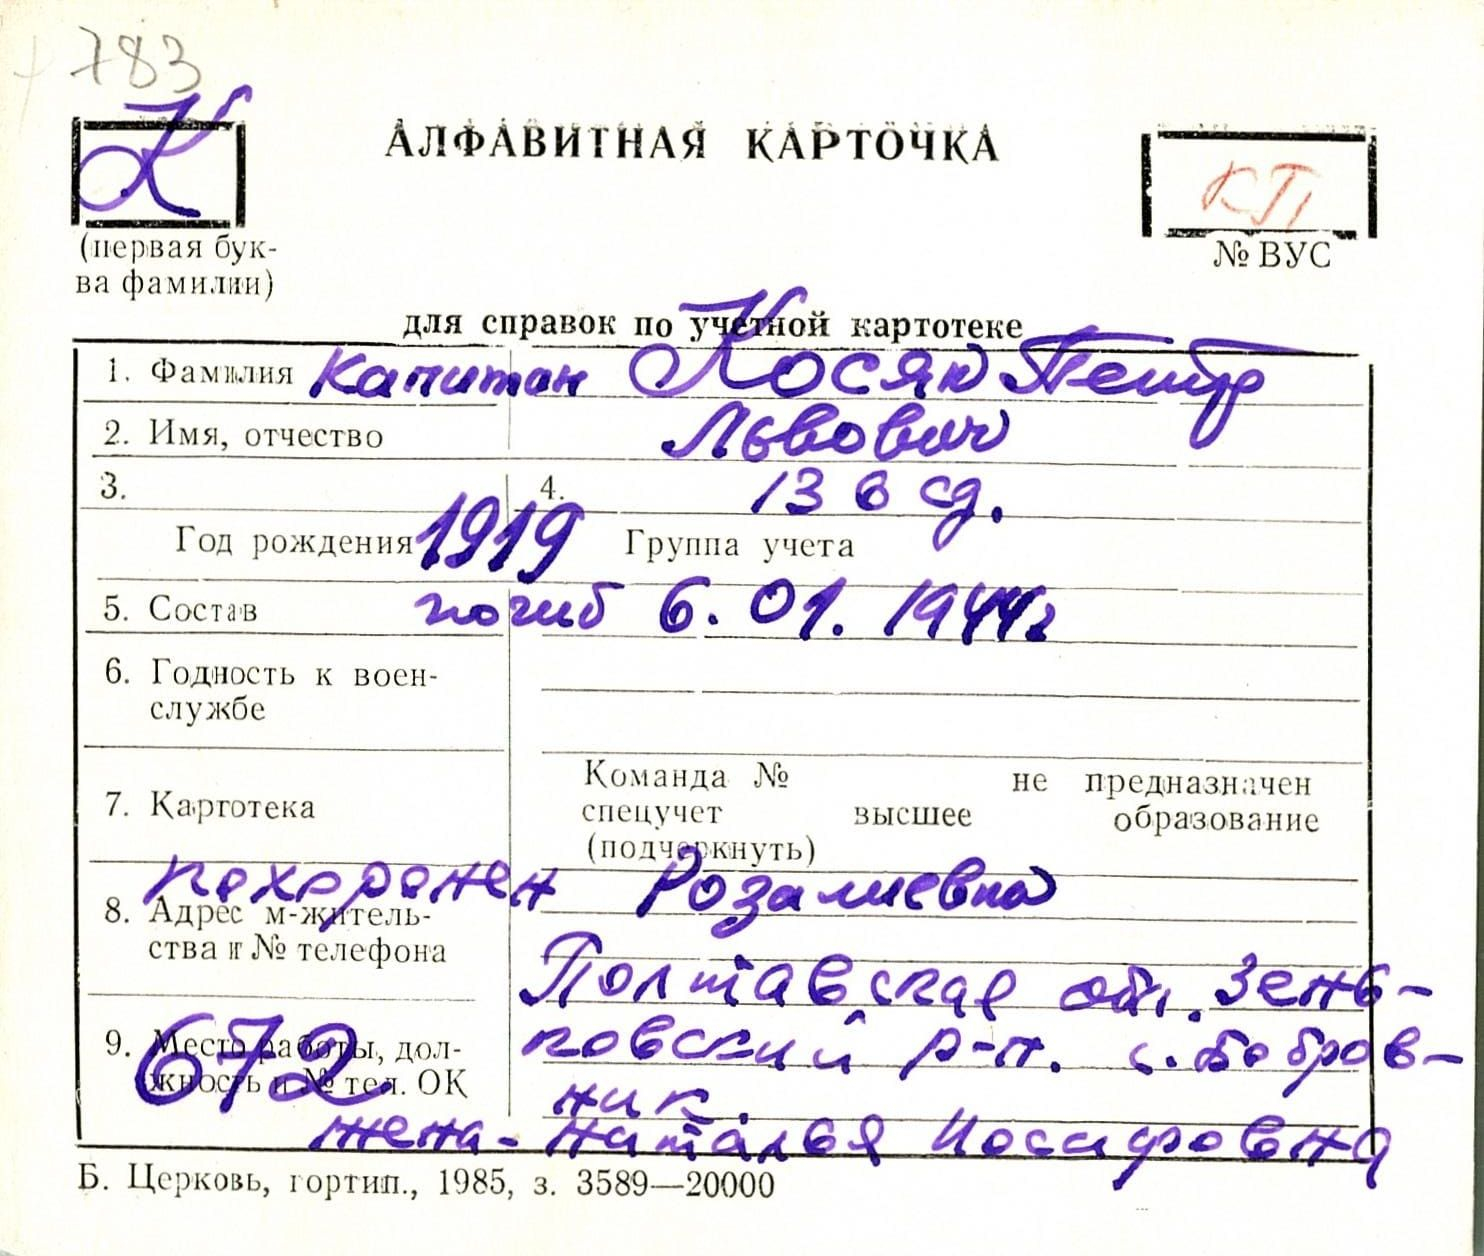 783
К
АЛФАВИТНАЯ КАРТОЧКА
КП
(первая бук-
ва фамилии)
№ ВУС
для справок по учетной картотеке
1. Фамилия капитан Косяк Петр
2. Имя, отчество Львович
3. 4. 136 сд.
Год рождения 1919 Группа учета
5. Состав погиб 6.01.1944г
6. Годность к воен-
службе
7. Картотека
Команда № не предназначен
спецучет высшее образование
(подчеркнуть)
похоронен Розалиевка
8. Адрес м-житель-
ства и № телефона
Полтавская обл. Зень-
ковский р-н. с. Бобров-
ник.
9. Место работы, дол-
жность и № тел. ОК
672
жена - Наталья Иосифовна
Б. Церковь, гортип., 1985, з. 3589—20000